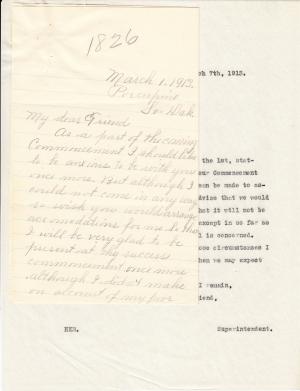 1826
March 1, 1913.
Porcupine
So. Dak.
My dear Friend
As a part of the coming
Commencement I should like
to be anxious to be with you
once more. But although I
could not come in any way
so wish you would arrang
accomodations for me so that
I will be very glad to be
present at the success
commencement once more
although I did not make
on account of my poor
ch 7th, 1913.
the 1st, stat-
our Commencement
can be made to as-
dvise that we would
that it will not be
except in so far as
l is concerned.
ese circumstances I
hen we may expect
I remain,
riend,
Superintendent.